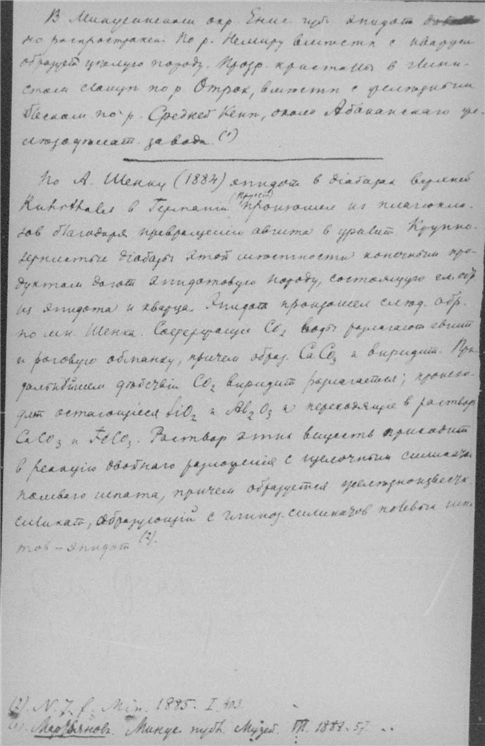 В Минусинском окр. Енис. губ. эпидот доволь-
но распространен. По р. Немиру вместе с кварцем
образует целую породу. Прозр. кристаллы в
сланце по р. Отрок, вместе с железным
блеском по р. Средней Кени, около Абаканскаго же-
лезоделат. завода. (1)
По А. Шенку (1884) эпидот в диабазах верхней
Ruhrthal в Германии произошел из плагиокла-
зов благодаря превращению авгита в уралит. Крупно-
зернистые диабазы этой местности конечным про-
дуктом дают эпидотовую породу, состоящую
из эпидота и кварца. Эпидот произошел след. обр.
по мн. Шенка. Содержащие CO2 воды разлагают авгит
и роговую обманку, причем образ. CaCO3 и виридит. При
дальнейшем действии CO2 виридит разлагается; происхо-
дят остающиеся SiO2 и Al2O3 и переходящие в раствор
CaCO3 и FeCO3. Раствор этих веществ приходит
в реакцию двойного разложения с щелочным силикатом
полеваго шпата, причем образуется железноизвестк.
силикат, образующий с глиноз. силикатов полевых шпа-
тов – эпидот (2).
(2) N. J. f. Min. 1885. I. 403.
Мартьянов. Минус. публ. Музей. 1881. 57.